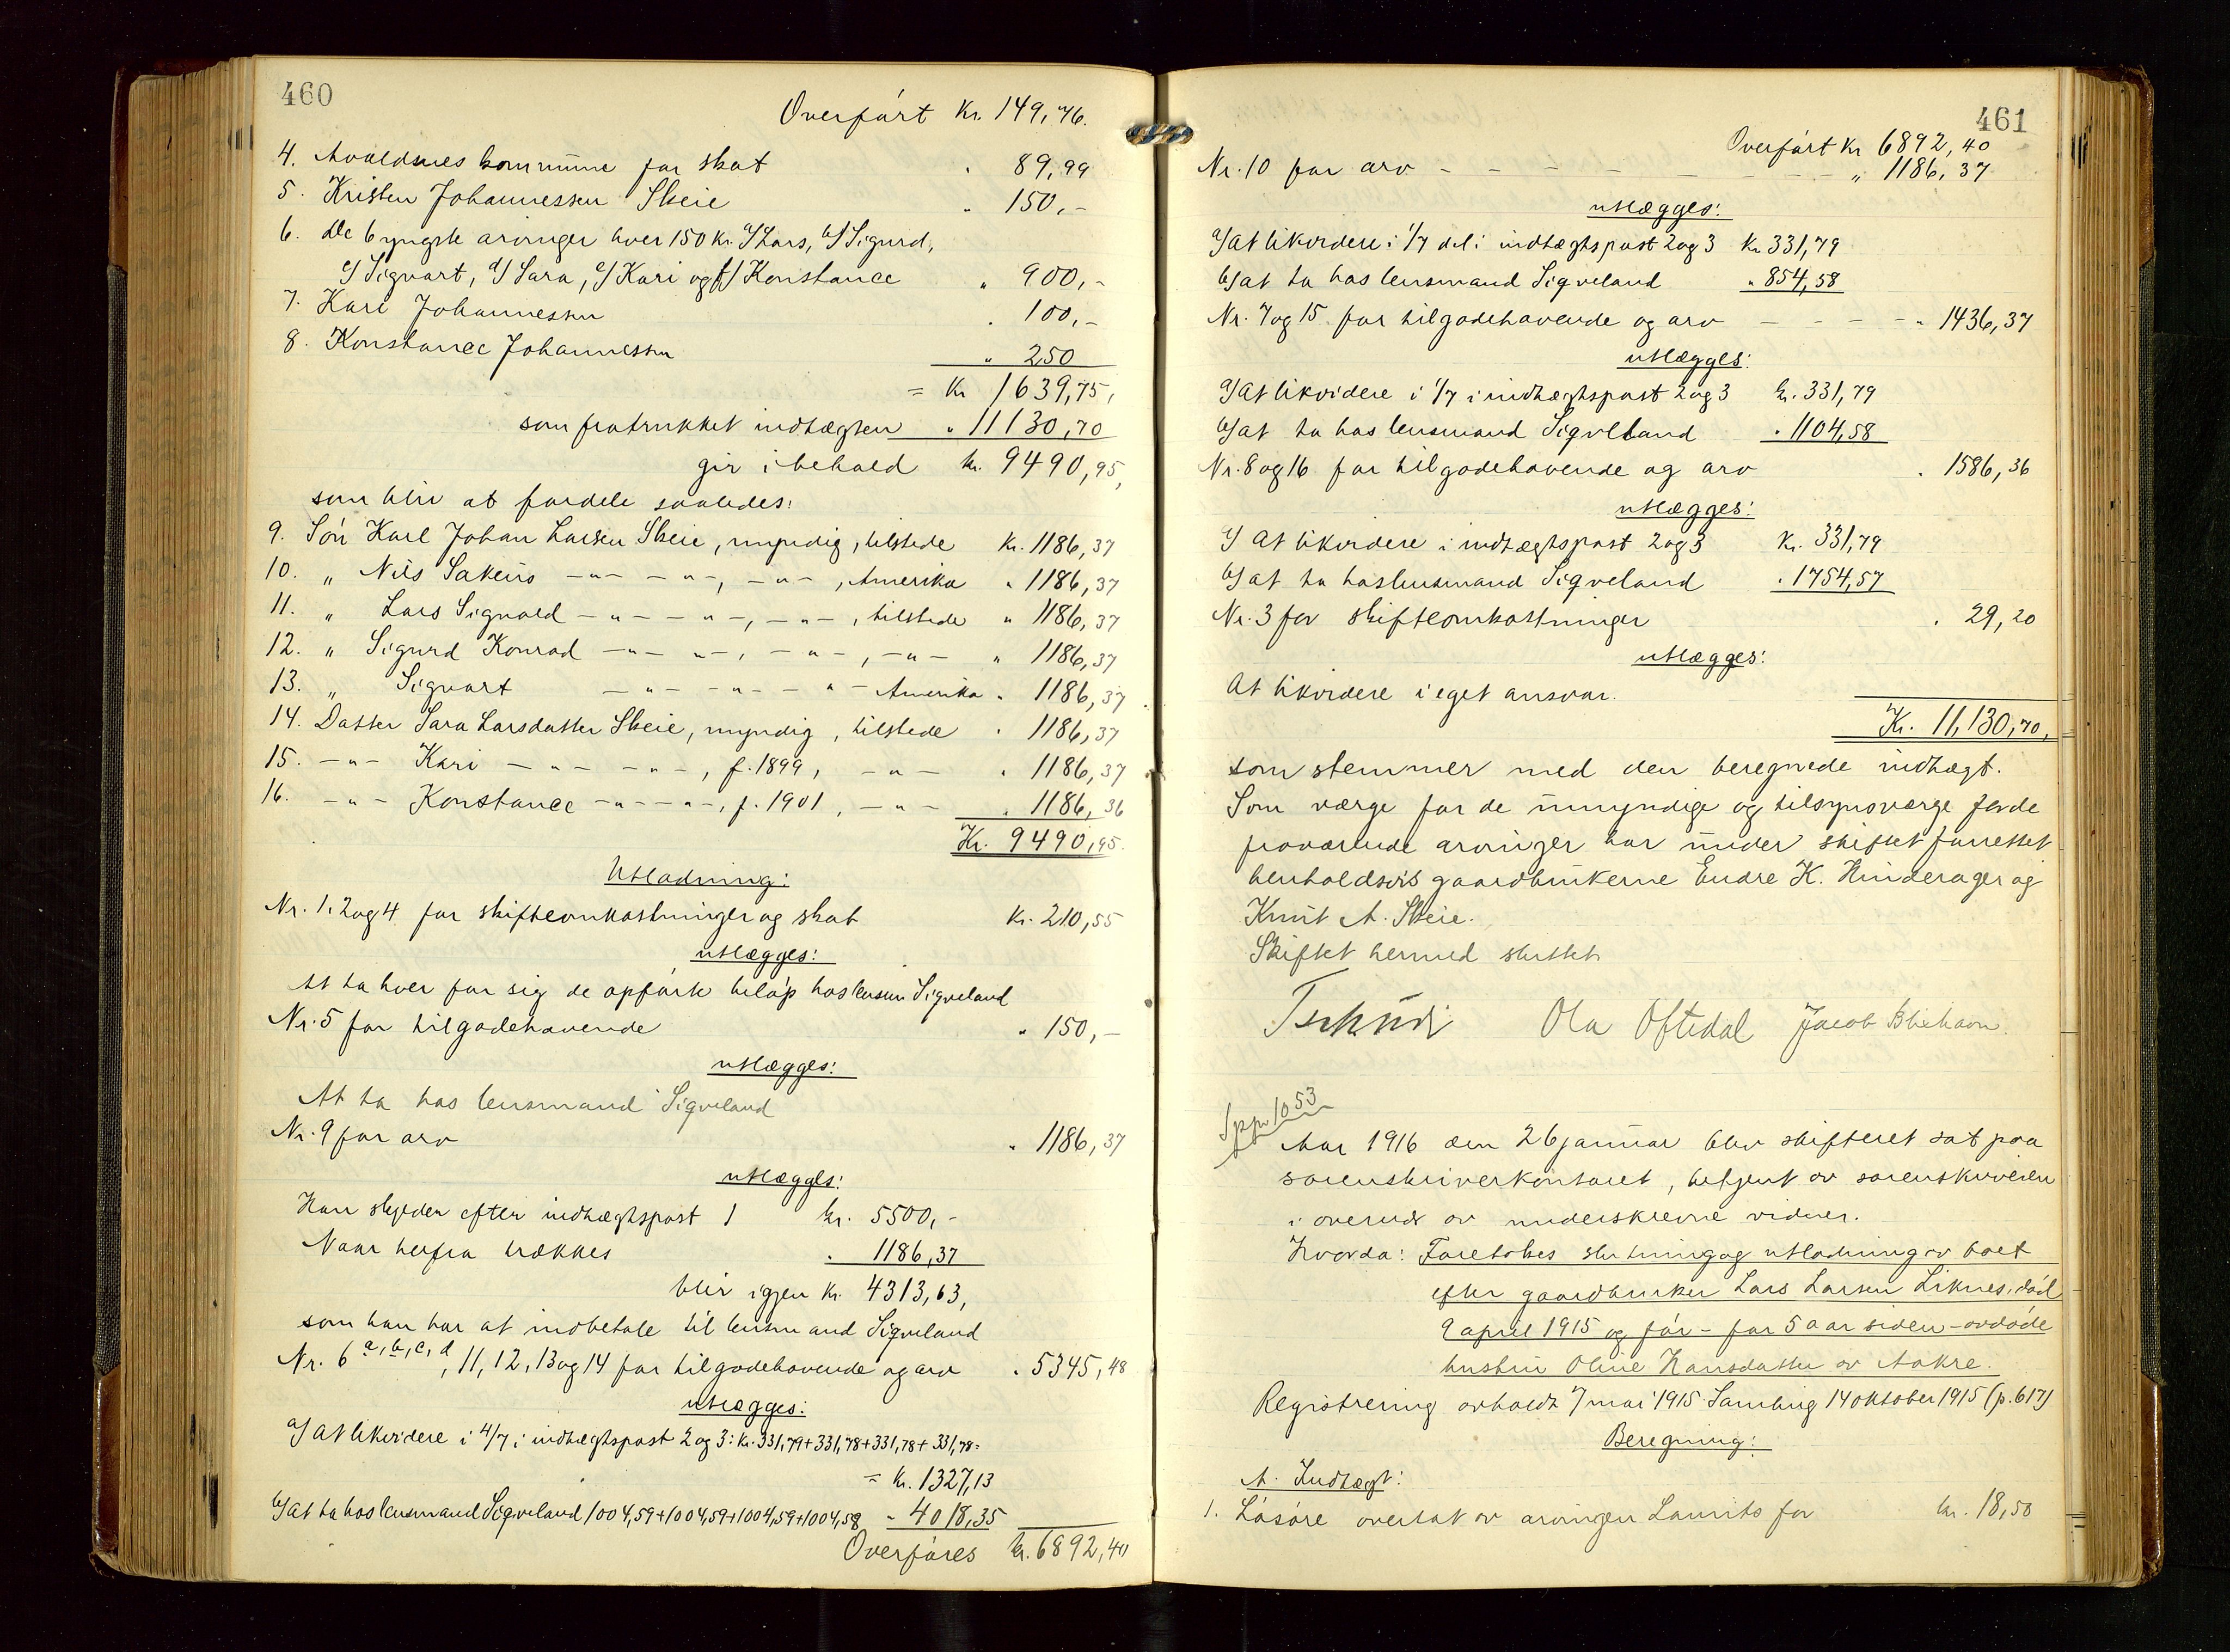 460
Overført Kr. 149,76.
4. Avaldsnes kommune for skat " 89,99
5. Kristen Johannessen Skeie " 150,-
6. De 6 yngste arvinger hver 150 Kr. a/ Lars, b/ Sigurd,
c/ Sigvart, d/ Sara, e/ Kari og f/ Konstance " 900,-
7. Kari Johannessen " 100,-
8. Konstance Johannessen " 250
= Kr 1639,75,
som fratrukket indtægten " 11130,70
gir i behold kr. 9490,95,
som blir at fordele saaledes:
9. Søn Karl Johan Larsen Skeie, myndig, tilstede Kr. 1186,37
10. " Nils Sakeus -"- -"-, -"-, Amerika " 1186,37
11. " Lars Sigvald -"- -"-, -"-, tilstede " 1186,37
12. " Sigurd Konrad -"- -"-, -"-, -"- " 1186,37
13. " Sigvart -"- -"- -"- Amerika " 1186,37
14. Datter Sara Larsdatter Skeie, myndig, tilstede " 1186,37
15. -"- Kari -"- -"-, f. 1899, -"- " 1186,37
16. -"- Konstance -"- -"-, f. 1901, -"- " 1186,36
Kr. 9490,95.
Utlodning:
Nr. 1, 2 og 4 for skifteomkostninger og skat Kr. 210,55
utlægges:
At ta hver for sig de opførte beløp hos lensm Sigveland
Nr. 5 for tilgodehavende " 150,-
utlægges:
At ta hos lensmand Sigveland
Nr. 9 for arv " 1186,37
utlægges:
Han skylder efter indtægtspost 1 kr. 5500,-
Naar herfra trækkes " 1186,37
blir igjen Kr. 4313,63,
som han har at indbetale til lensmand Sigveland
Nr. 6 a, b, c, d, 11, 12, 13 og 14 for tilgodehavende og arv " 5345,48
utlægges:
a/ At likvidere i 4/7 i indtægtspost 2 og 3: Kr. 331,79+331,78+331,78+331,78=
= Kr. 1327,13
b/ at ta hos lensmand Sigveland 1004,59+1004,59+1004,59+1004,58 " 4018,35
Overføres kr. 6892,40
461
Overført Kr 6892,40
Nr. 10 for arv - - - - - - - " 1186,37
utlægges:
a/ at likvidere i 1/7 del i indtægtspost 2 og 3 Kr 331,79
b/ at ta hos lensmand Sigveland " 854,58
Nr. 7 og 15 for tilgodehavende og arv - - - - " 1436,37
utlægges:
a/ At likvidere i 1/7 i indtægtspost 2 og 3 kr. 331,79
b/ at ta hos lensmand Sigveland " 1104,58
Nr. 8 og 16 for tilgodehavende og arv " 1586,36
utlægges:
a/ At likvidere i indtægtspost 2 og 3 Kr. 331,79
b/ at ta hos lensmand Sigveland " 1754,57
Nr. 3 for skifteomkostninger " 29,20
utlægges:
At likvidere i eget ansvar.
Kr. 11,130,70,
som stemmer med den beregnede indtægt.
Som værge for de umyndige og tilsynsværge for de
fraværende arvinger har under skiftet forrettet
henholdsvis gaardbrukerne Endre K. Hinderager og
Knut A. Skeie.
Skiftet hermed sluttet.
Tschudi Ola Oftedal Jacob
1053
Aar 1916 den 26 januar blev skifteret sat paa
sorenskriverkontoret, betjent av sorenskriveren
i overvær av underskrevne vidner.
Hvorda: Foretokes slutning og utlodning av boet
efter gaardbruker Lars Larsen Liknes, død
9 april 1915 og før - for 5 aar siden - avdøde
hustru Oline Hansdatter av Aakre.
Registrering avholdt 7 mai 1915 Samling 14 oktober 1915 (p. 617)
Beregning:
A. Indtægt:
1. Løsøre overtat av arvingen Laurits for kr. 18,50